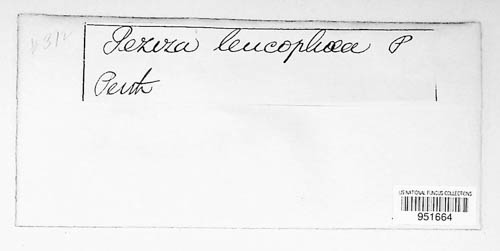 Peziza leucophaea P
Perth
US NATIONAL FUNGUS COLLECTIONS
951664